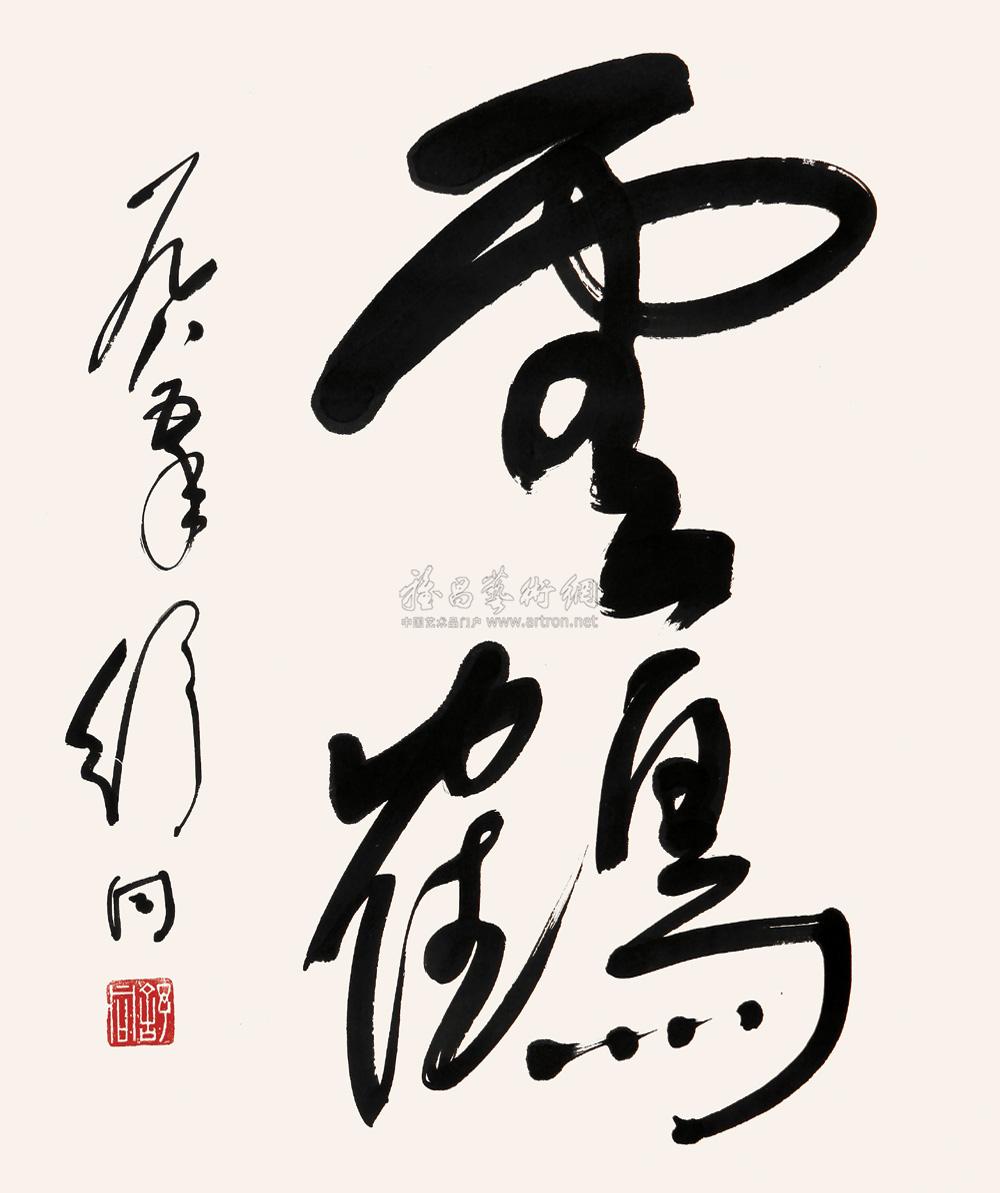 雲鶴
一九八五年 舒同
舒同
雅昌藝術網
中国艺术品门户 www.artron.net